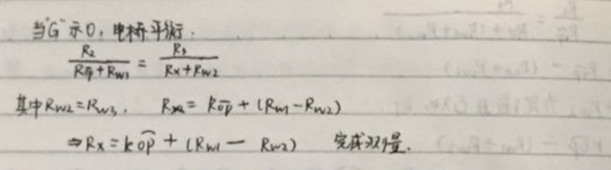 当"G"示0，电桥平衡.
R₂/(R_{op}+R_{W1}) = R₃/(R_x+R_{W2})
其中R_{W2}=R_{W3}， R_{x2}= k\overline{op} + (R_{W1}-R_{W2})
⇒R_x=k\widehat{op}+(R_{W1} — R_{W2}) 完成测量.